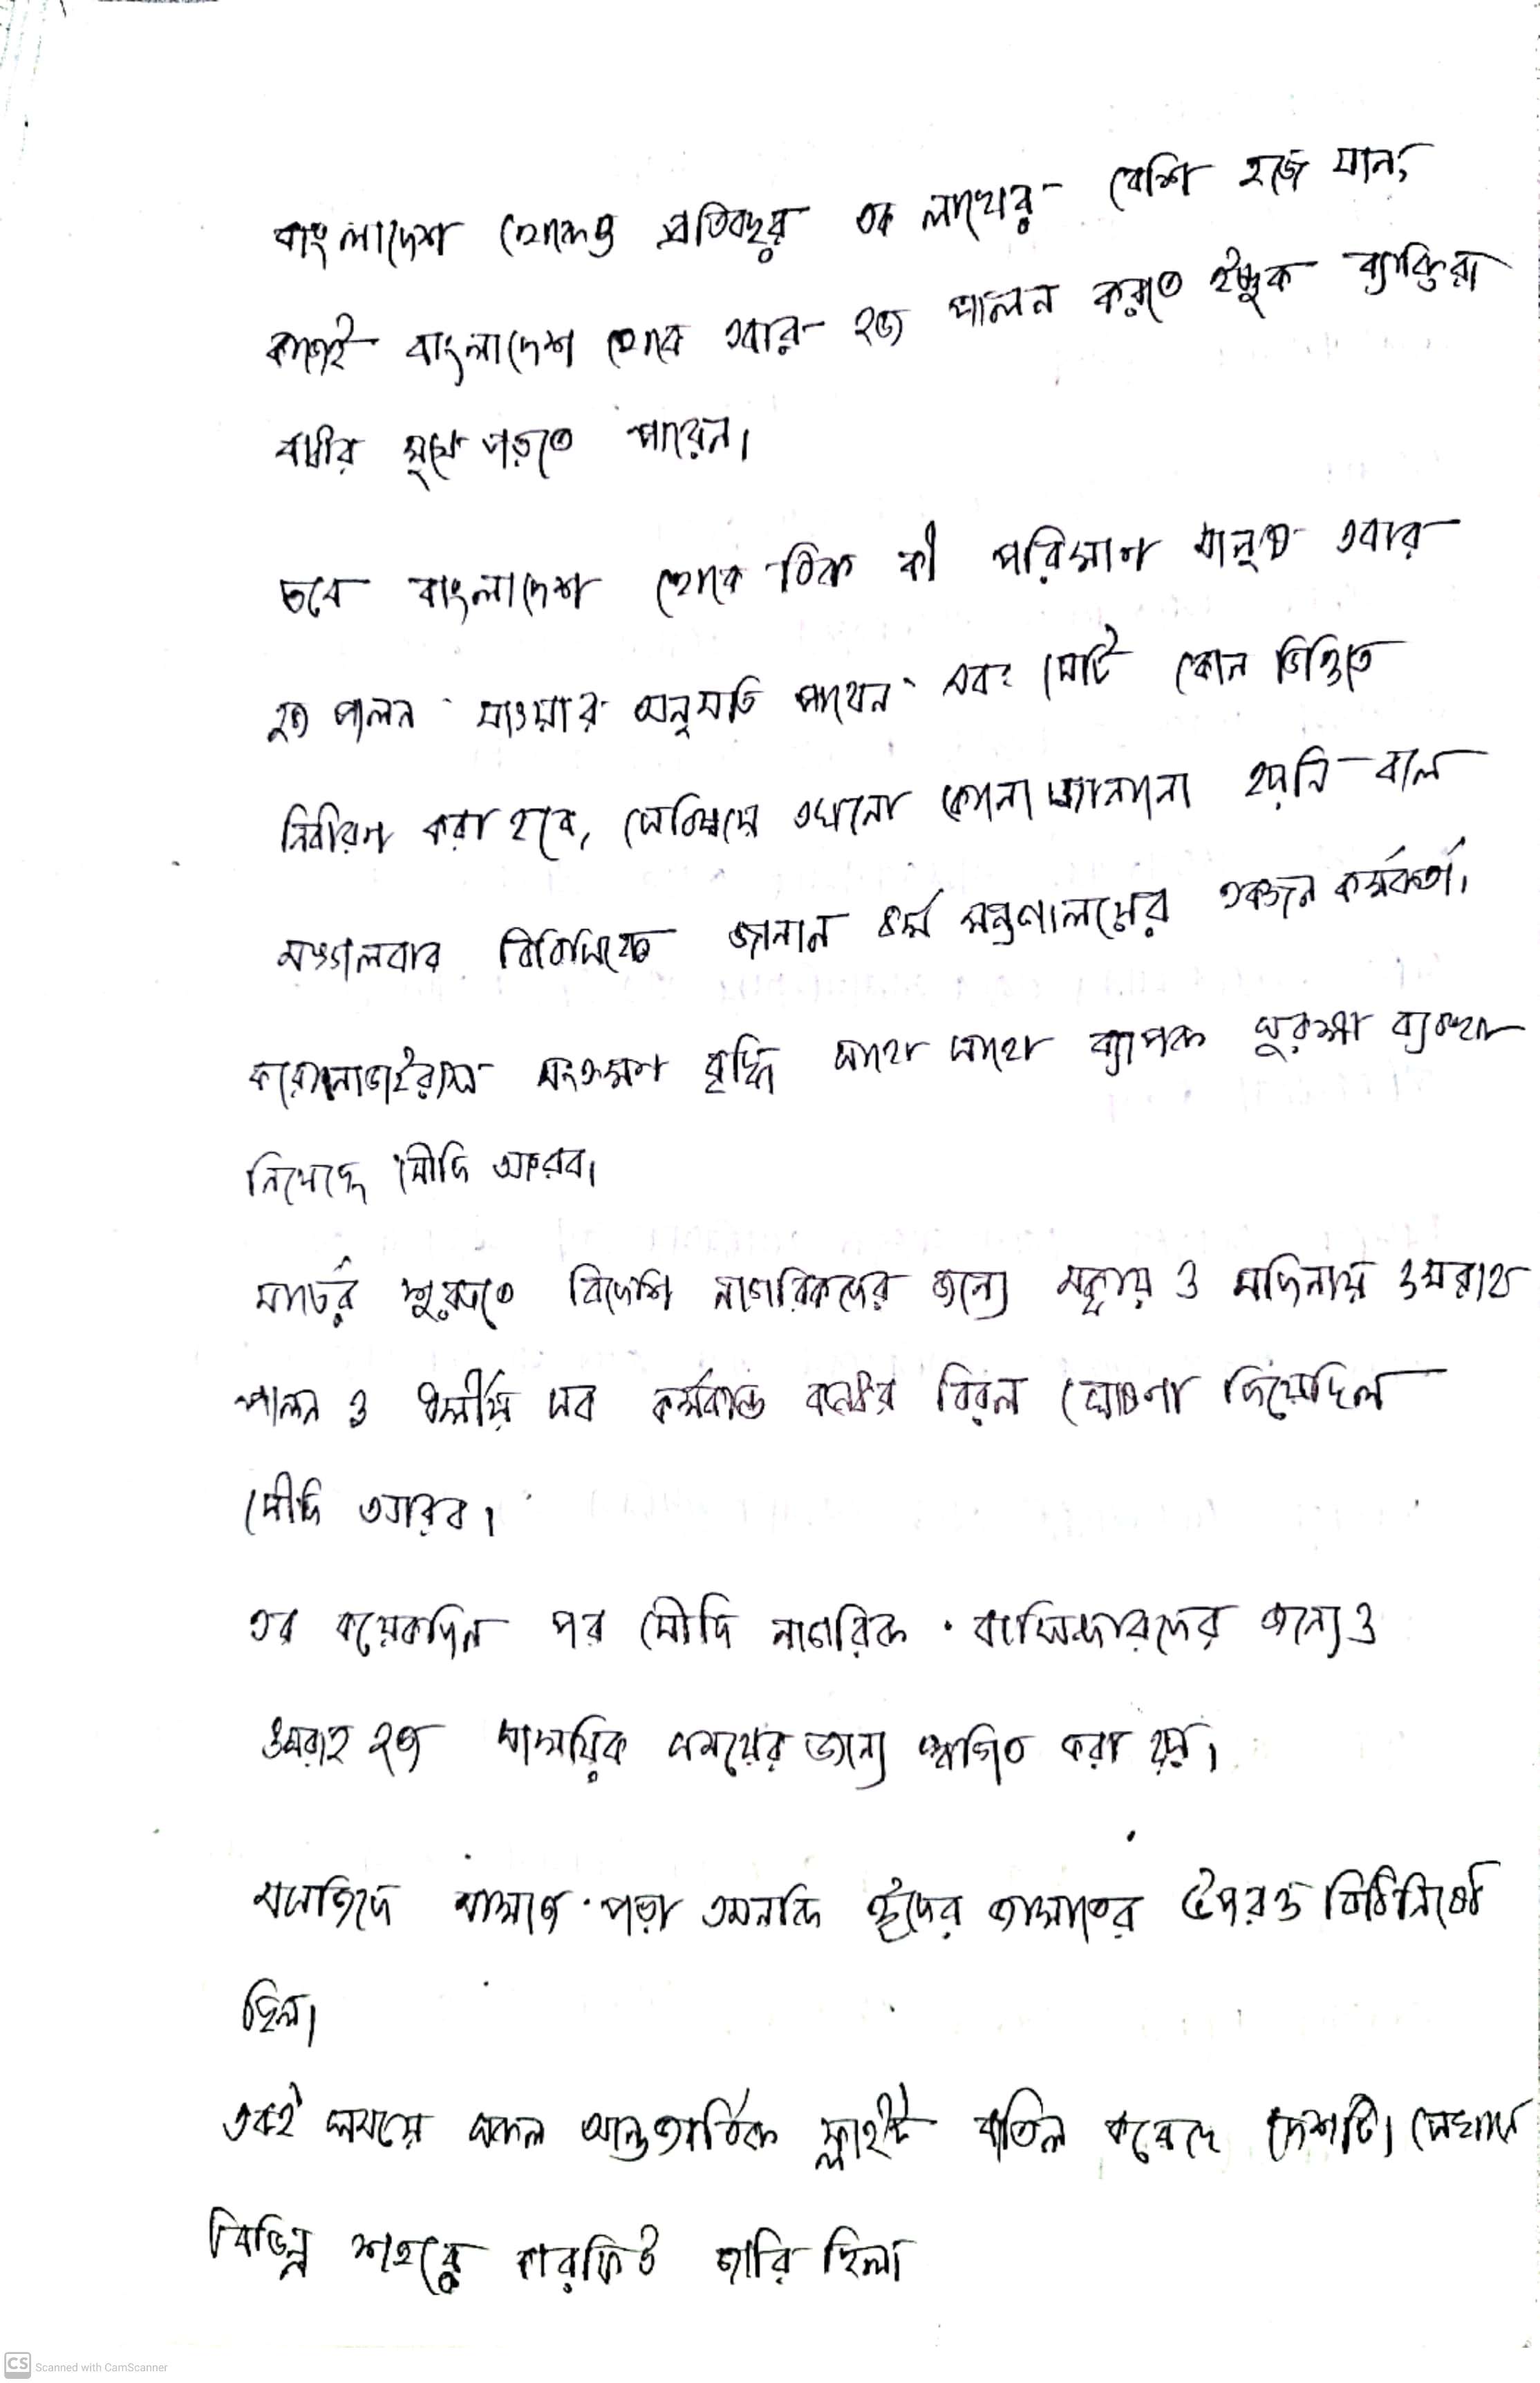 বাংলাদেশ থেকেও প্রতিবছর এক লাখের বেশি হজে যান,
কাজেই বাংলাদেশ থেকে এবার হজ পালন করতে ইচ্ছুক ব্যাক্তিরা
বাধার মুখে পড়তে পারেন।
তবে বাংলাদেশ থেকে ঠিক কী পরিমাণ মানুষ এবার
হজ পালন যাওয়ার অনুমতি পাবেন এবং সেটি কোন ভিত্তিতে
নির্ধারণ করা হবে, সেবিষয়ে এখনো কোনো জানানো হয়নি বলে
মঙ্গলবার বিবিসিকে জানান ধর্ম মন্ত্রণালয়ের একজন কর্মকর্তা।
করোনাভাইরাস সংক্রমণ বৃদ্ধি সাথে সাথে ব্যাপক সুরক্ষা ব্যবস্থা
নিয়েছে সৌদি আরব।
মার্চের শুরুতে বিদেশি নাগরিকদের জন্যে মক্কায় ও মদিনায় ওমরাহ
পালন ও ধর্মীয় সব কর্মকান্ড বন্ধের বিরল ঘোষণা দিয়েছিল
সৌদি আরব।
এর কয়েকদিন পর সৌদি নাগরিক বাসিন্দারদের জন্যেও
ওমরাহ হজ সাময়িক সময়ের জন্যে স্থগিত করা হয়।
মসজিদে নামাজ পড়া এমনকি ঈদের জামাতের উপরও বিধিনিষেধ
ছিল।
একই সময়ে সকল আন্তজার্তিক ফ্লাইট বাতিল করেছে দেশটি। সেখানে
বিভিন্ন শহরে কারফিউ জারি ছিল।
CS Scanned with CamScanner